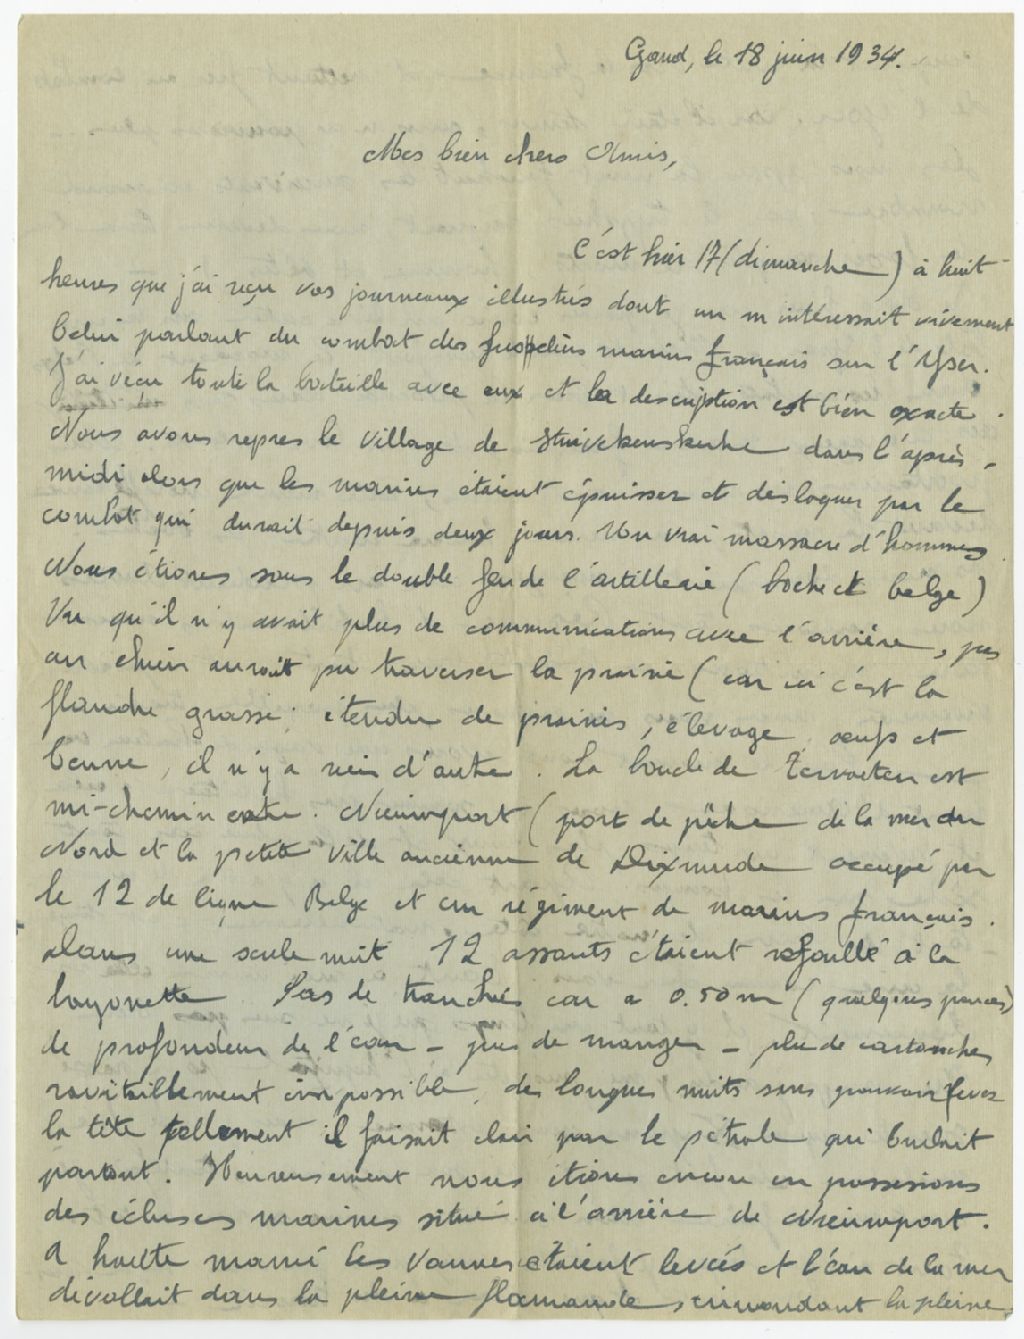 Gand, le 18 juin 1934.
Mes bien chers Amis,
C'est hier 17 (dimanche) à huit
heures que j'ai reçu vos journeaux illustrés dont un m'intéressait vivement
Celui parlant du combat des fusiliers marins français sur l'Yser.
J'ai vécu toute la bataille avec eux et la description est bien exacte.
Nous avons repres le village de Stuivekenskerke dans l'après-
midi alors que les marins étaient épuisser et disloquer par le
combat qui durait depuis deux jours. Un vrai massacre d'hommes.
Nous étions sous le double feu de l'artillerie (boche et belge)
Vu qu'il n'y avait plus de communications avec l'arrière, pas
un chien aurait pu traverser la prairie (car ici c'est la
flandre grasse étendue de prairies, élevage, oeufs et
beurre, il n'y a rien d'autre. La boucle de Tervaeten est
mi-chemin entre. Nieuwport (port de pêche de la mer du
Nord et la petite ville ancienne de Dixmude occupé par
le 12 de ligne Belge et un régiment de marins français.
dans une seule nuit 12 assauts étaient refoullé à la
bayonette Pas de tranchés car a 0.50m (quelques pouces)
de profondeur de l'eau - pas de manger - plus de cartouches
ravitaillement impossible, de longues nuits sans pouvoir lever
la tête tellement il faisait clair par le pétrole qui brulait
partout. Heureusement nous étions encore en possessions
des écluses marines situé à l'arrière de Nieuwport.
A haute mareé les vannes étaient levées et l'eau de la mer
dévallait dans la pleine flamande, innondant la pleine